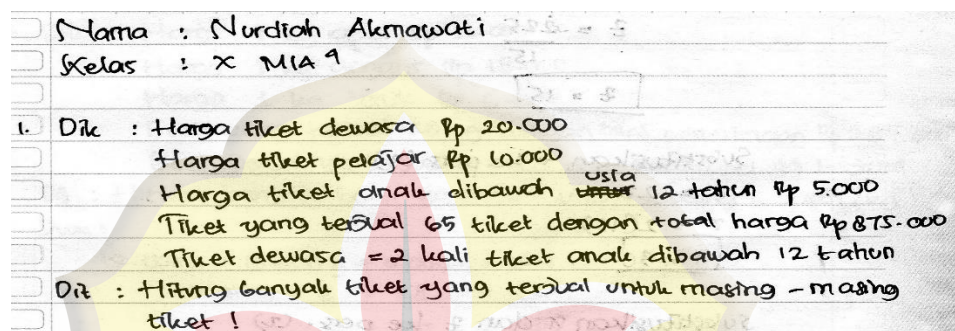 Nama : Nurdiah Akmawati
Kelas : X MIA 9
1. Dik : Harga tiket dewasa Rp 20.000
Harga tiket pelajar Rp 10.000
Harga tiket anak dibawah usia 12 tahun Rp 5.000
Tiket yang terjual 65 tiket dengan total harga Rp 875.000
Tiket dewasa = 2 kali tiket anak dibawah 12 tahun
Dit : Hitung banyak tiket yang terjual untuk masing - masing
tiket !